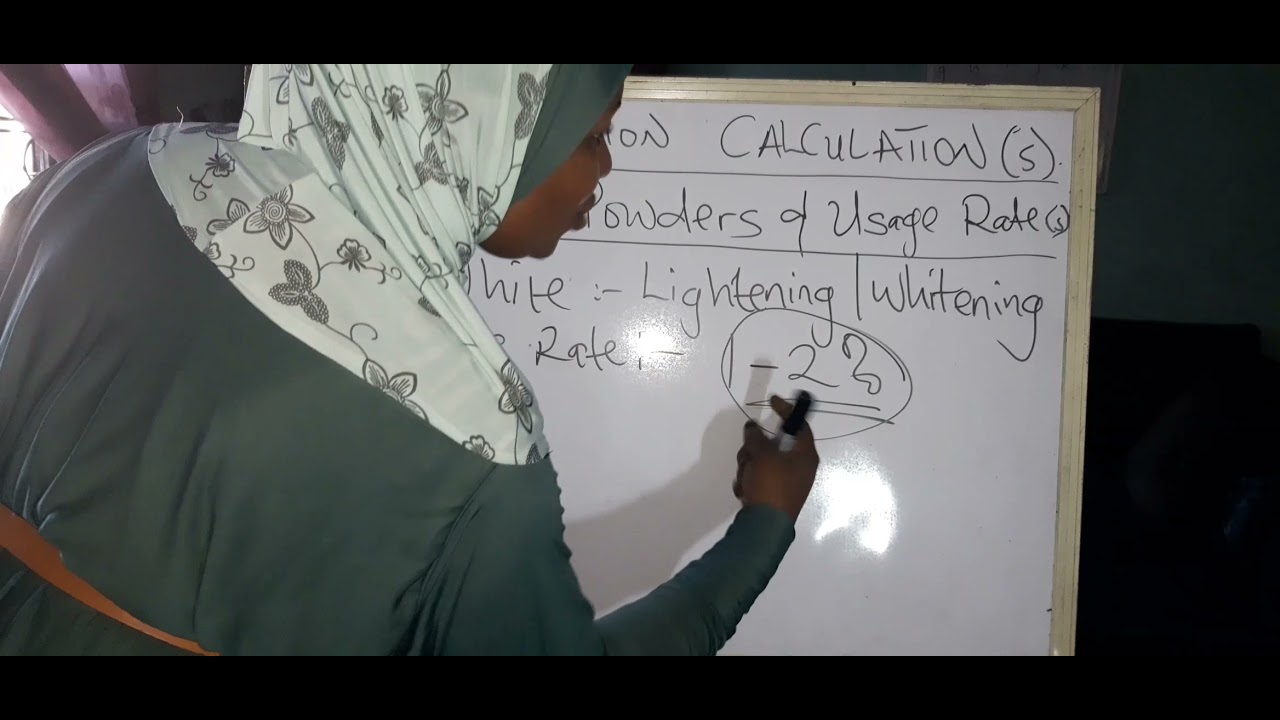 ION CALCULATION(S).
Powders & Usage Rate(s)
White :- Lightening | Whitening
Rate :- 1-2%